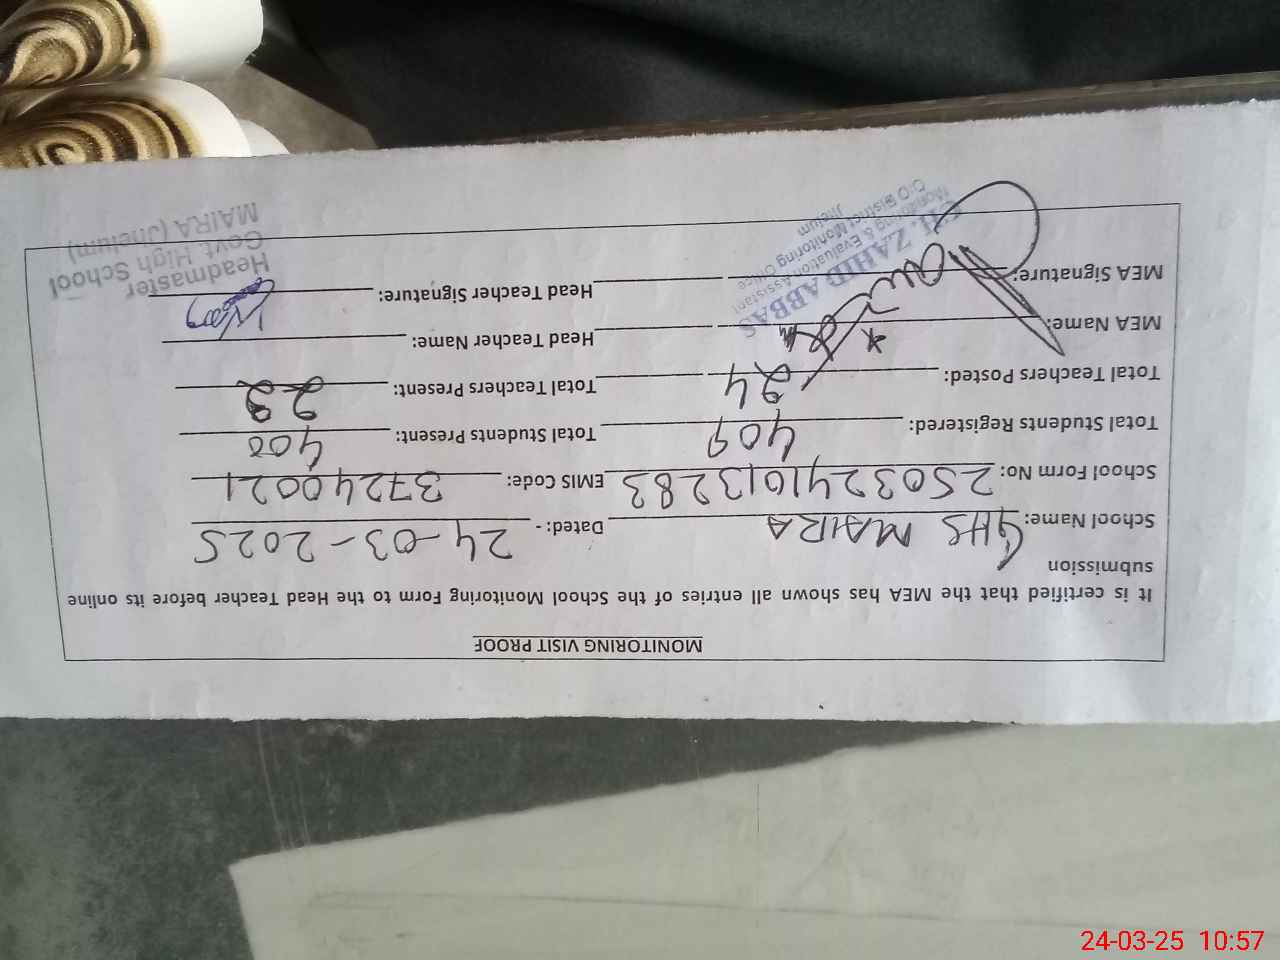 MONITORING VISIT PROOF
It is certified that the MEA has shown all entries of the School Monitoring Form to the Head Teacher before its online
submission
School Name: GHS MAIRA Dated: - 24-03-2025
School Form No: 2503241013283 EMIS Code: 37240021
Total Students Registered: 409 Total Students Present: 400
Total Teachers Posted: 24 Total Teachers Present:
MEA Name: Head Teacher Name:
MEA Signature: Head Teacher Signature:
ZAHID ABBAS
Monitoring & Evaluation Assistant
O/O District Monitoring Office
Jhelum
Headmaster
Govt. High School
MAIRA (Jhelum)
24-03-25 10:57